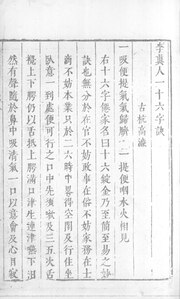 李真人一十六字訣
古杭高濂
一吸便提氣氣歸臍一提便嚥水火相見
右十六字僊家名曰十六錠金乃至簡至易之
訣也無分於在官不妨政事在俗不妨家務在士
商不妨本業只於二六時中畧得空閒及行住坐
臥意一到處便可行之口中先須漱及三五次舌
攪上下腭仍以舌抵上腭滿口津生連津嚥下汩
然有聲隨於鼻中吸清氣一口以意會及心目寂